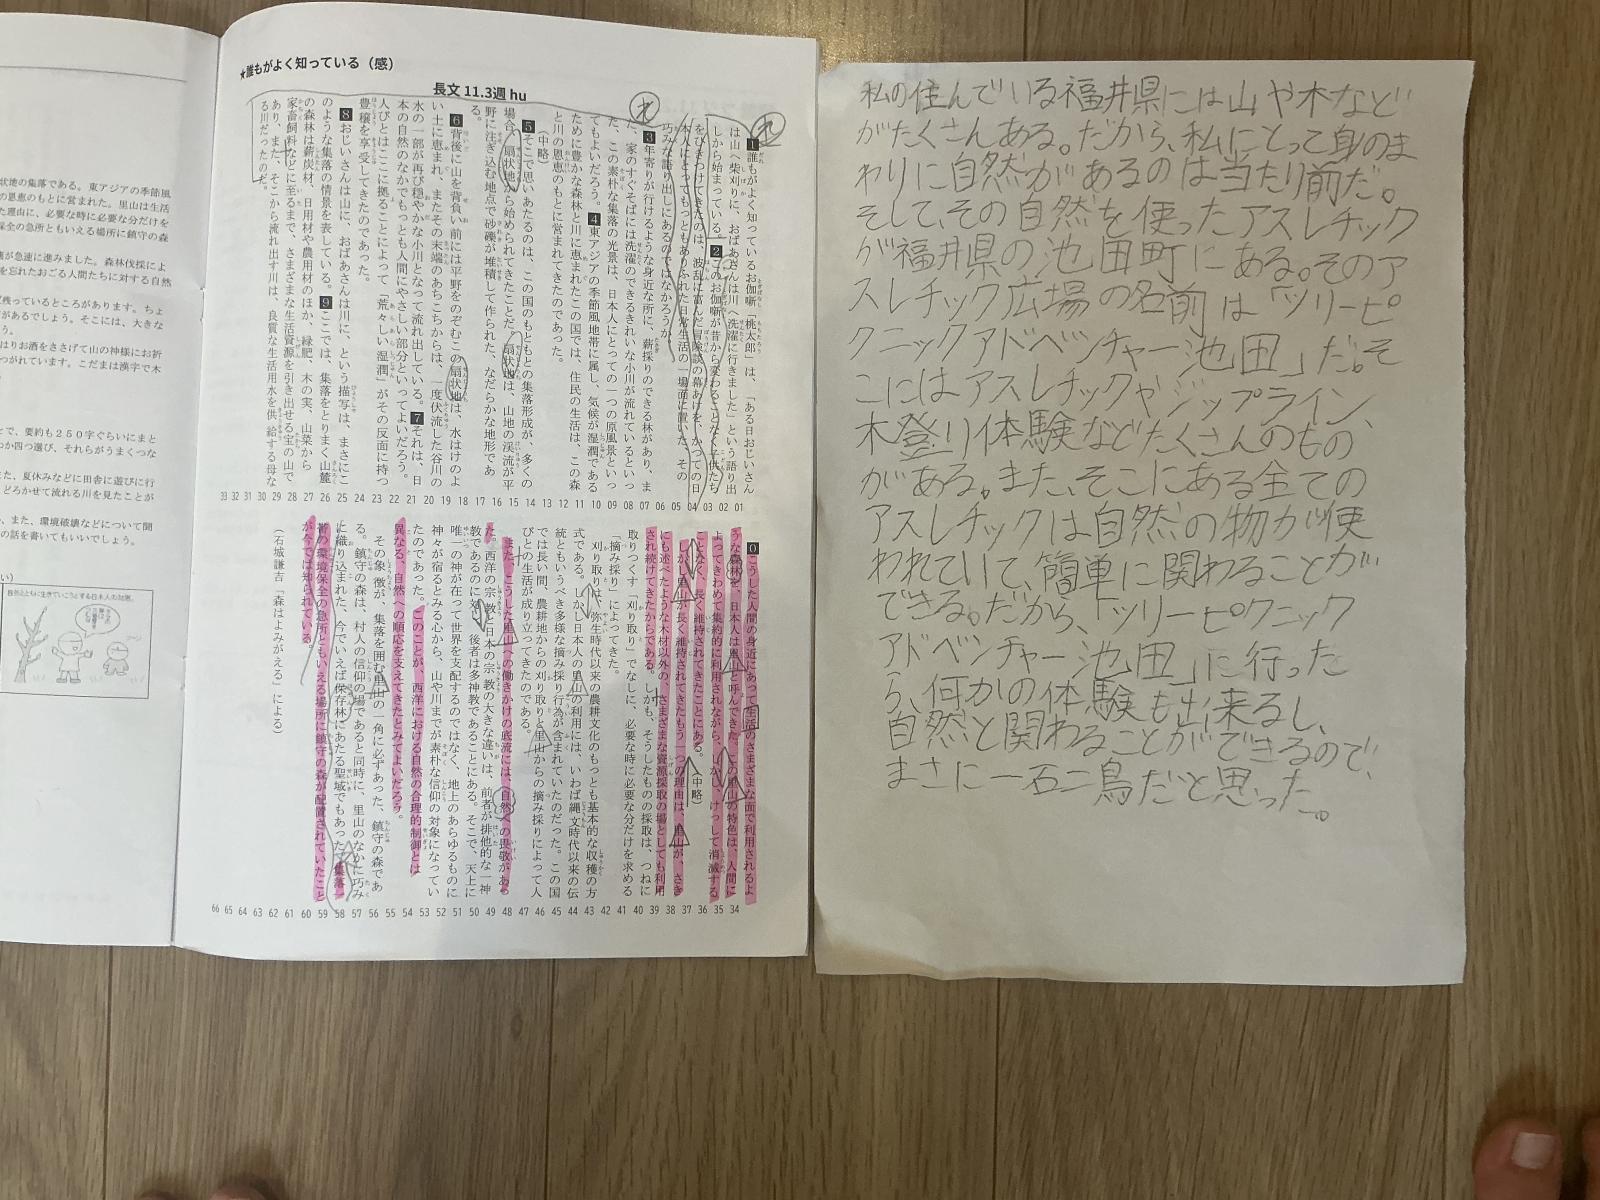 ★誰もがよく知っている（感）
長文 11.3週 hu
1誰もがよく知っているお伽噺「桃太郎」は、「ある日おじいさん
は山へ柴刈りに、おばあさんは川へ洗濯に行きました」という語り出
しから始まっている。2このお伽噺が昔から変わることなく子供たち
をひきつけてきたのは、波乱に富んだ冒険談の幕あけを、かつての日
本人にとってもっともありふれた日常生活の一場面に置いた、その
巧みな語り出しにあるのではなかろうか。
3年寄りが行けるような身近な所に、薪採りのできる林があり、ま
た、家のすぐそばには洗濯のできるきれいな小川が流れているといっ
た、この素朴な集落の光景は、日本人にとっての一つの原風景といっ
てもよいだろう。4東アジアの季節風地帯に属し、気候が湿潤である
ために豊かな森林と川に恵まれたこの国では、住民の生活は、この森
と川の恩恵のもとに営まれてきたのであった。
（中略）
5そこで思いあたるのは、この国のもともとの集落形成が、多くの
場合、扇状地から始められてきたことだ。扇状地は、山地の渓流が平
野に注ぎ込む地点で砂礫が堆積して作られた、なだらかな地形であ
る。
6背後に山を背負い、前には平野をのぞむこの扇状地は、水はけのよ
い土に恵まれ、またその末端のあちこちからは、一度伏流した谷川の
水の一部が再び穏やかな小川となって流れ出している。7それは、日
本の自然のなかでもっとも人間にやさしい部分といってよいだろう。
人びとはここに拠ることによって「荒々しい湿潤」がその反面に持つ
豊穣を享受してきたのであった。
8おじいさんは山に、おばあさんは川に、という描写は、まさにこ
のような集落の情景を表している。9ここでは、集落をとりまく山麓
の森林は薪炭材、日用材や農用材のほか、緑肥、木の実、山菜から
家畜飼料などに至るまで、さまざまな生活資源を引き出せる宝の山で
あり、また、そこから流れ出す川は、良質な生活用水を供給する母な
る川だったのだ。
33 32 31 30 29 28 27 26 25 24 23 22 21 20 19 18 17 16 15 14 13 12 11 10 09 08 07 06 05 04 03 02 01
0こうした人間の身近にあって生活のさまざまな面で利用されるよ
うな森林を、日本人は里山と呼んできた。この里山の特色は、人間に
よってきわめて集約的に利用されながら、しかし、けっして消滅する
ことなく、長く維持されてきたことにある。（中略）
しかし里山が長く維持されてきたもう一つの理由は、里山が、さき
にも述べたような木材以外の、さまざまな資源採取の場としても利用
され続けてきたからである。しかも、そうしたものの採取は、つねに
取りつくす「刈り取り」でなしに、必要な時に必要な分だけを求める
「摘み採り」によってきた。
刈り取りは、弥生時代以来の農耕文化のもっとも基本的な収穫の方
式である。しかし日本人の里山の利用には、いわば縄文時代以来の伝
統ともいうべき多様な摘み採り行為が含まれていたのだった。この国
では長い間、農耕地からの刈り取りと里山からの摘み採りによって人
びとの生活が成り立ってきたのである。
また、こうした里山への働きかけの底流には、自然への畏敬があっ
た。西洋の宗教と日本の宗教の大きな違いは、前者が排他的な一神
教であるのに対し、後者は多神教であることにある。そこで、天上に
唯一の神が在って世界を支配するのではなく、地上のあらゆるものに
神々が宿るとみる心から、山や川までが素朴な信仰の対象になってい
たのであった。このことが、西洋における自然の合理的制御とは
異なる、自然への順応を支えてきたとみてよいだろう。
その象徴が、集落を囲む里山の一角に必ずあった、鎮守の森であ
る。鎮守の森は、村人の信仰の場であると同時に、里山のなかに巧み
に織り込まれた、今でいえば保存林にあたる聖域でもあった。集落
帯の環境保全の急所ともいえる場所に鎮守の森が配置されていたこと
が今では知られている。
（石城謙吉「森はよみがえる」による）
66 65 64 63 62 61 60 59 58 57 56 55 54 53 52 51 50 49 48 47 46 45 44 43 42 41 40 39 38 37 36 35 34
状地の集落である。東アジアの季節風
の恩恵のもとに営まれた。里山は生活
た理由に、必要な時に必要な分だけを
保全の急所ともいえる場所に鎮守の森
が急速に進みました。森林伐採によ
を忘れたおごる人間たちに対する自然
残っているところがあります。ちょ
があるでしょう。そこには、大きな
う。
はりお酒をささげて山の神様にお祈
つがれています。こだまは漢字で木
で、要約も２５０字ぐらいにまと
か四つ選び、それらがうまくつな
また、夏休みなどに田舎に遊びに行
どろかせて流れる川を見たことが
、また、環境破壊などについて聞
の話を書いてもいいでしょう。
自然とともに生きていこうとする日本人の知恵。
私の住んでいる福井県には山や木など
がたくさんある。だから、私にとって身のま
わりに自然があるのは当たり前だ。
そして、その自然を使ったアスレチック
が福井県の池田町にある。そのア
スレチック広場の名前は「ツリーピ
クニックアドベンチャー池田」だ。そ
こにはアスレチックやジップライン、
木登り体験などたくさんのもの
がある。また、そこにある全ての
アスレチックは自然の物が使
われていて、簡単に関わることが
できる。だから、「ツリーピクニック
アドベンチャー池田」に行った
ら、何かの体験も出来るし、
自然と関わることができるので、
まさに一石二鳥だと思った。